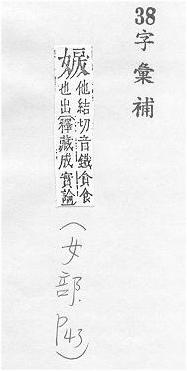 38
字彙補
他結切音鐵貪食
也出釋藏成實論
(女部.P43)